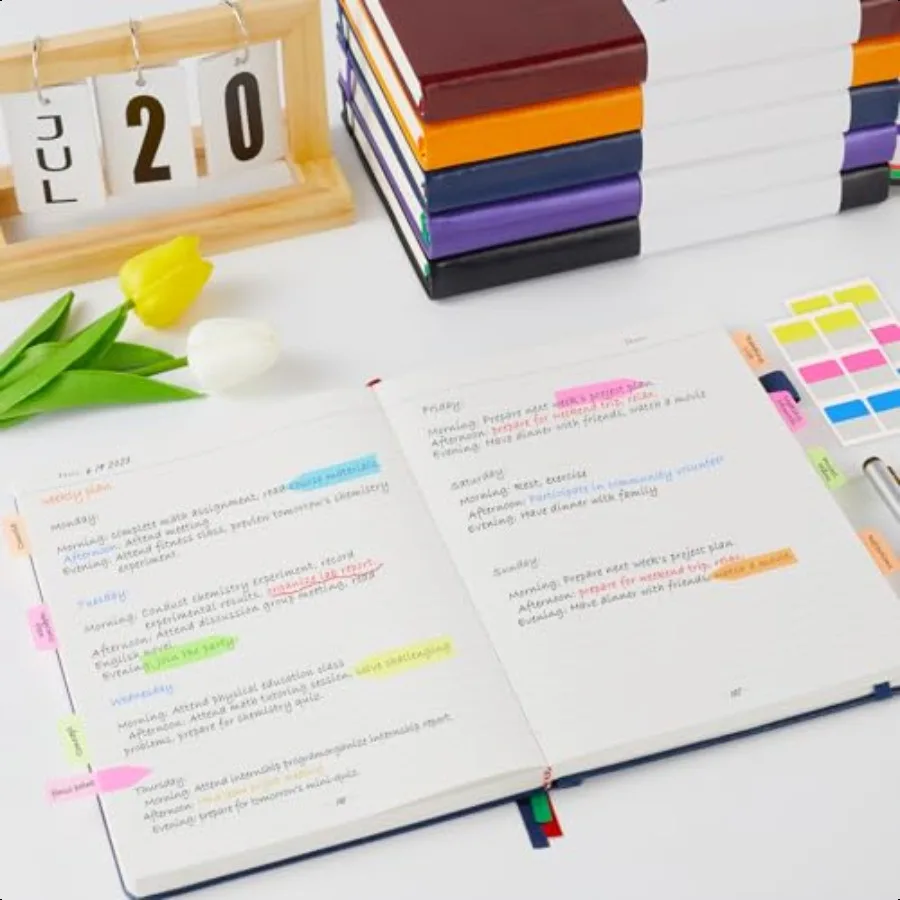 JUL
20
6 19 2023
Weekly plan
Monday:
Morning: complete math assignment, read course materials
Afternoon: Attend meeting
Evening: Attend fitness class, preview tomorrow's chemistry
experiment.
Tuesday:
Morning: Conduct chemistry experiment, record
experimental results, organize lab report.
Afternoon: Attend discussion group meeting, read
English novel
Evening: join the party
Wednesday
Morning: Attend physical education class
Afternoon: Attend math tutoring session, solve challenging
problems, prepare for chemistry quiz.
Thursday:
Morning: Attend internship programorganize internship report
Afternoon:
Evening: prepare for tomorrow's mini-quiz.
Friday:
Morning: Prepare next week's project plan
Afternoon: prepare for weekend trip, relax.
Evening: Have dinner with friends, watch a movie
Saturday:
Morning: Rest, exercise
Afternoon: Participate in community volunteer
Evening: Have dinner with family
Sunday:
Morning: Prepare next week's project plan
Afternoon: prepare for weekend trip, relax.
Evening: Have dinner with friends, watch a movie